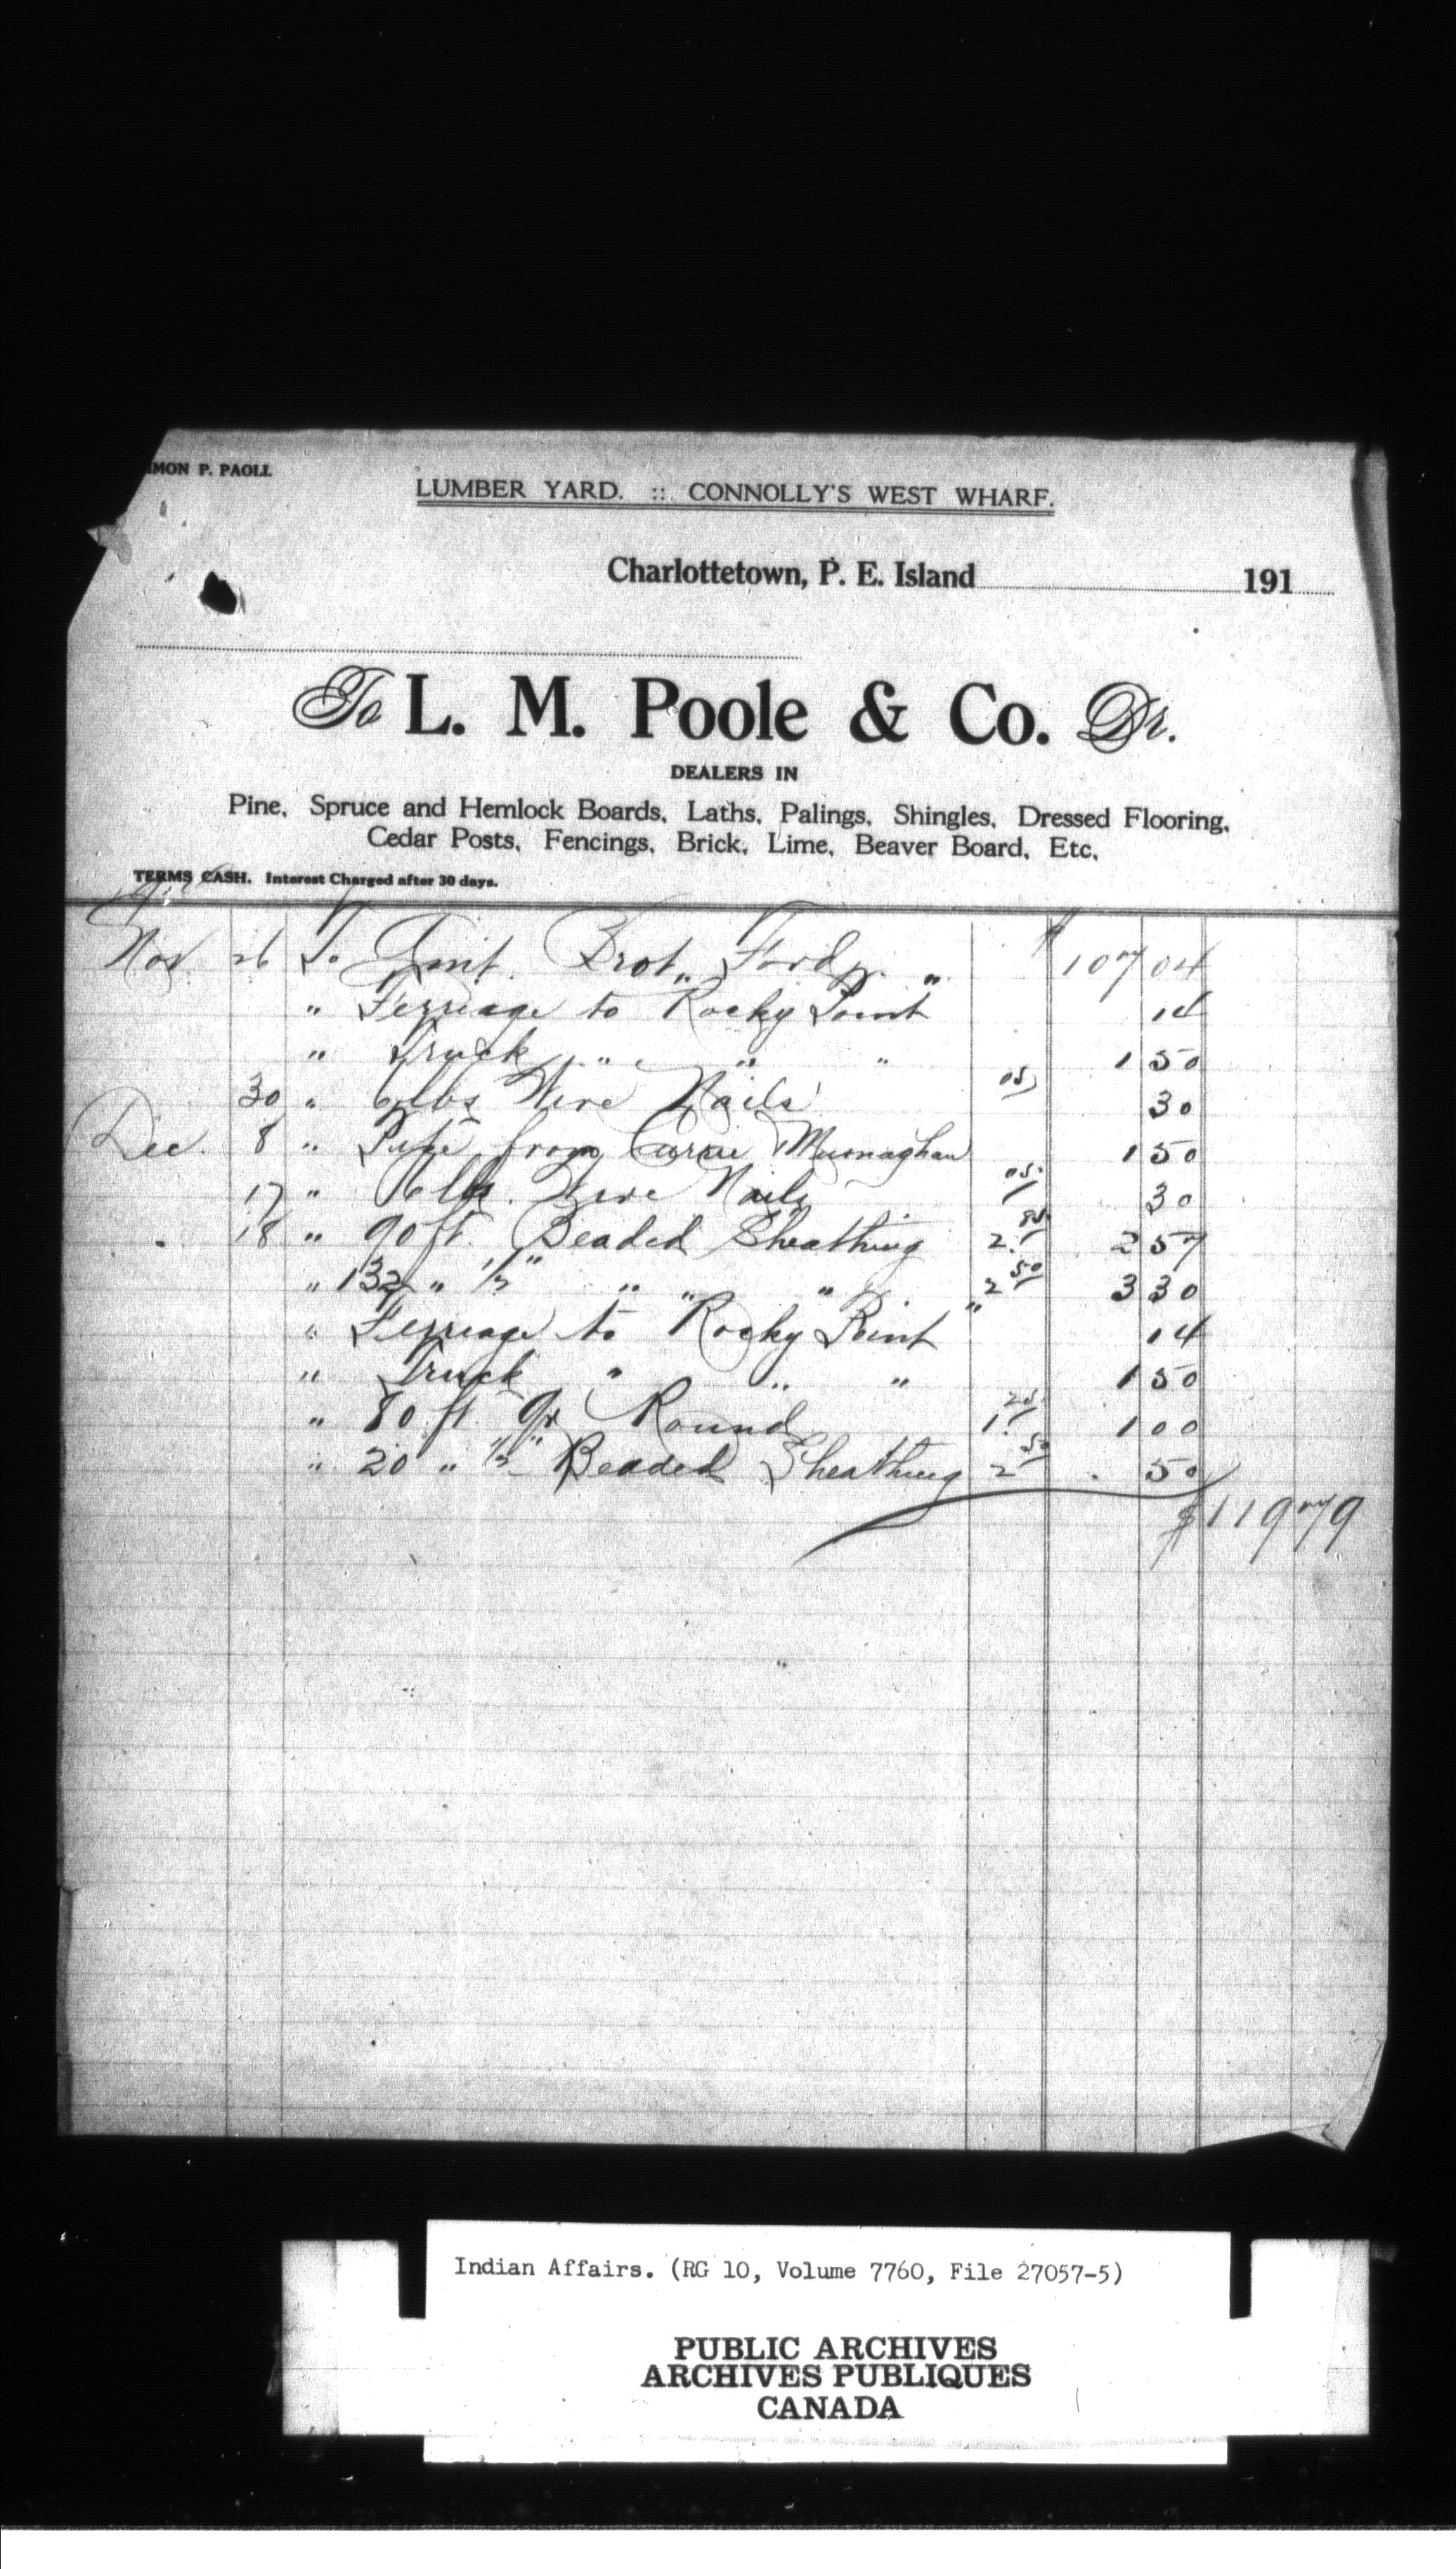 MON P. PAOLI.
LUMBER YARD. :: CONNOLLY'S WEST WHARF.
Charlottetown, P. E. Island 191
To L. M. Poole & Co. Dr.
DEALERS IN
Pine, Spruce and Hemlock Boards, Laths, Palings, Shingles, Dressed Flooring,
Cedar Posts, Fencings, Brick, Lime, Beaver Board, Etc,
TERMS CASH. Interest Charged after 30 days.
Nov. 26 To Amt. Brot. Ford. " $ 107 04
" Ferriage to Rocky Point 14
" Truck " " " 1 50
30 " 6 lbs Wire Nails 05 30
Dec. 8 " from Murnaghan 1 50
17 " 6 lbs. Wire Nails 05 30
18 " 90 ft. Beaded Sheathing 2.85 2 57
" 132 " 1/2" " " " 2 50 3 30
" Ferriage to Rocky Point " 14
" Truck " " " 1 50
" 80 ft. Qr Round 1.25 1 00
" 20 " 1/2" Beaded Sheathing 2 50 50
$119 79
Indian Affairs. (RG 10, Volume 7760, File 27057-5)
PUBLIC ARCHIVES
ARCHIVES PUBLIQUES
CANADA